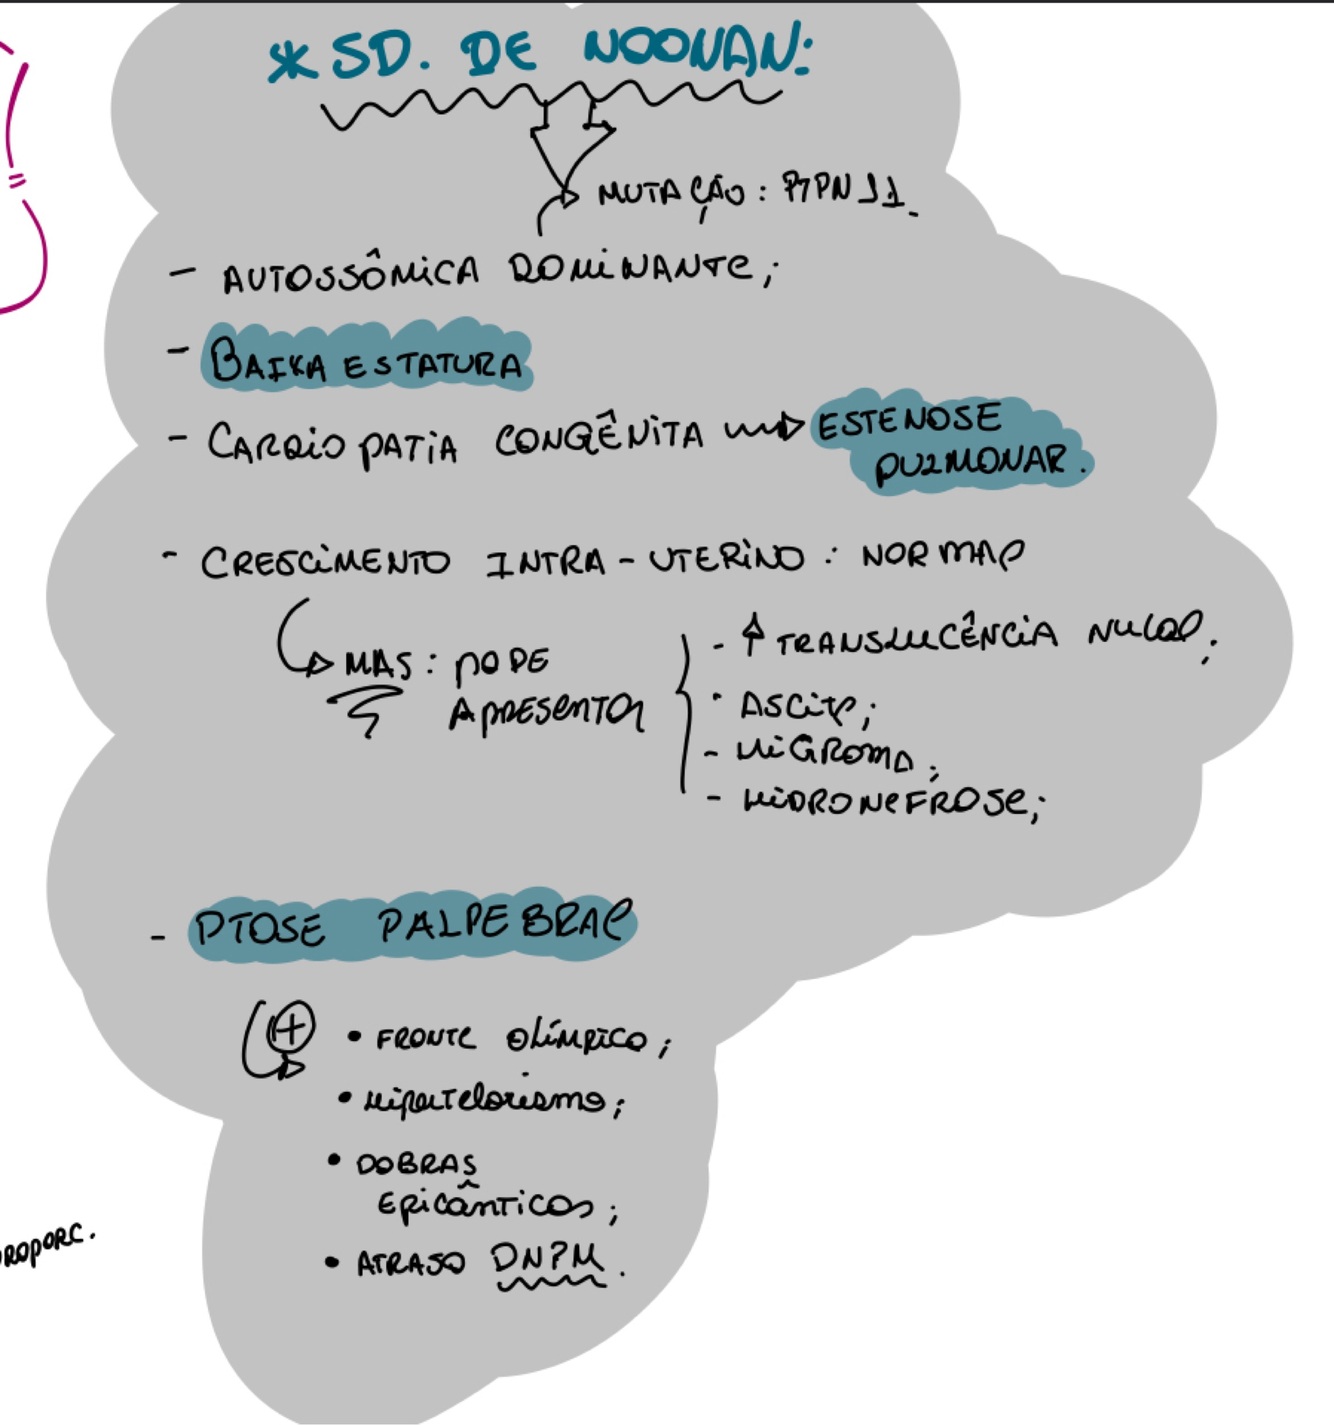 * SD. DE NOONAN:
MUTAÇÃO: PTPN11.
- AUTOSSÔMICA DOMINANTE;
- BAIXA ESTATURA
- CARDIOPATIA CONGÊNITA → ESTENOSE
PULMONAR.
- CRESCIMENTO INTRA-UTERINO: NORMAL
MAS: PODE
APRESENTAR
- ↑ TRANSLUCÊNCIA NUCAL;
- ASCITE;
- HIGROMA;
- HIDRONEFROSE;
- PTOSE PALPEBRAL
+ • FRONTE OLÍMPICA;
• HIPERTELORISMO;
• DOBRAS
EPICÂNTICAS;
• ATRASO DNPM.